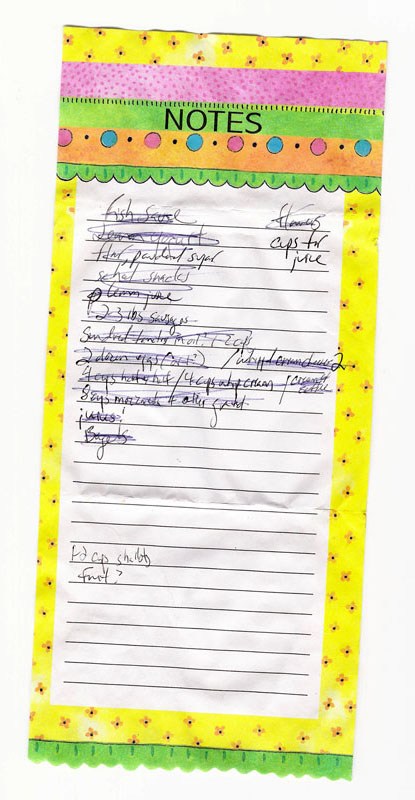 NOTES
fish sauce
flowers
cups for
lemon yogurt
juice
flour, powdered sugar
school snacks
lemon juice
2 3 lbs sausages
Sundried tomato in oil: 1-2 cups
2 dozen eggs / whipped cream cheese 2
4 cups half+half / 4 cups whip cream / creamer coffee
8 cups mozzarella +
juices!
Bagels
1-2 cup shallots
fruit?